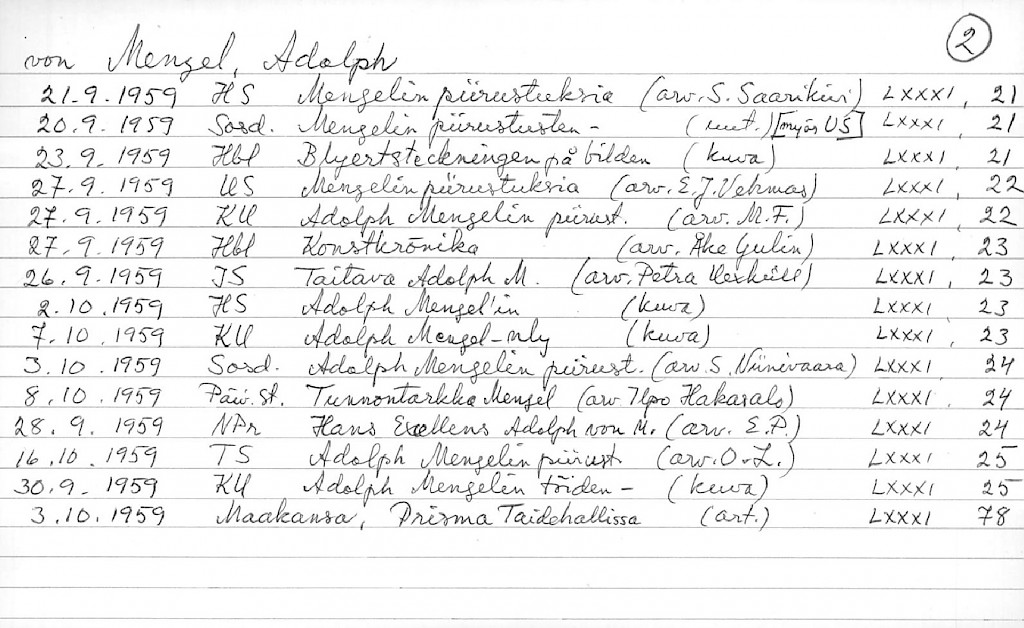 2
von Menzel, Adolph
21.9.1959 HS Menzelin piirustuksia (arv. S. Saarikivi) LXXXI, 21
20.9.1959 Sosd. Menzelin piirustusten - (uut.) [myös US] LXXXI, 21
23.9.1959 Hbl Blyertsteckningen på bilden (kuva) LXXXI, 21
27.9.1959 US Menzelin piirustuksia (arv. E.J. Vehmas) LXXXI, 22
27.9.1959 KU Adolph Menzelin piirust. (arv. M.F.) LXXXI, 22
27.9.1959 Hbl Konstkrönika (arv. Åke Gulin) LXXXI, 23
26.9.1959 IS Taitava Adolph M. (arv. Petra Uexküll) LXXXI, 23
2.10.1959 HS Adolph Menzel'in (kuva) LXXXI, 23
7.10.1959 KU Adolph Menzel-nly (kuva) LXXXI, 23
3.10.1959 Sosd. Adolph Menzelin piirust. (arv. S. Niinivaara) LXXXI, 24
8.10.1959 Päiv. St. Tunnontarkka Menzel (arv. Ilpo Hakasalo) LXXXI, 24
28.9.1959 NPr Hans Excellens Adolph von M. (arv. E.P.) LXXXI, 24
16.10.1959 TS Adolph Menzelin piirust. (arv. O-L.) LXXXI, 25
30.9.1959 KU Adolph Menzelin töiden - (kuva) LXXXI, 25
3.10.1959 Maakansa, Prisma Taidehallissa (art.) LXXXI, 78